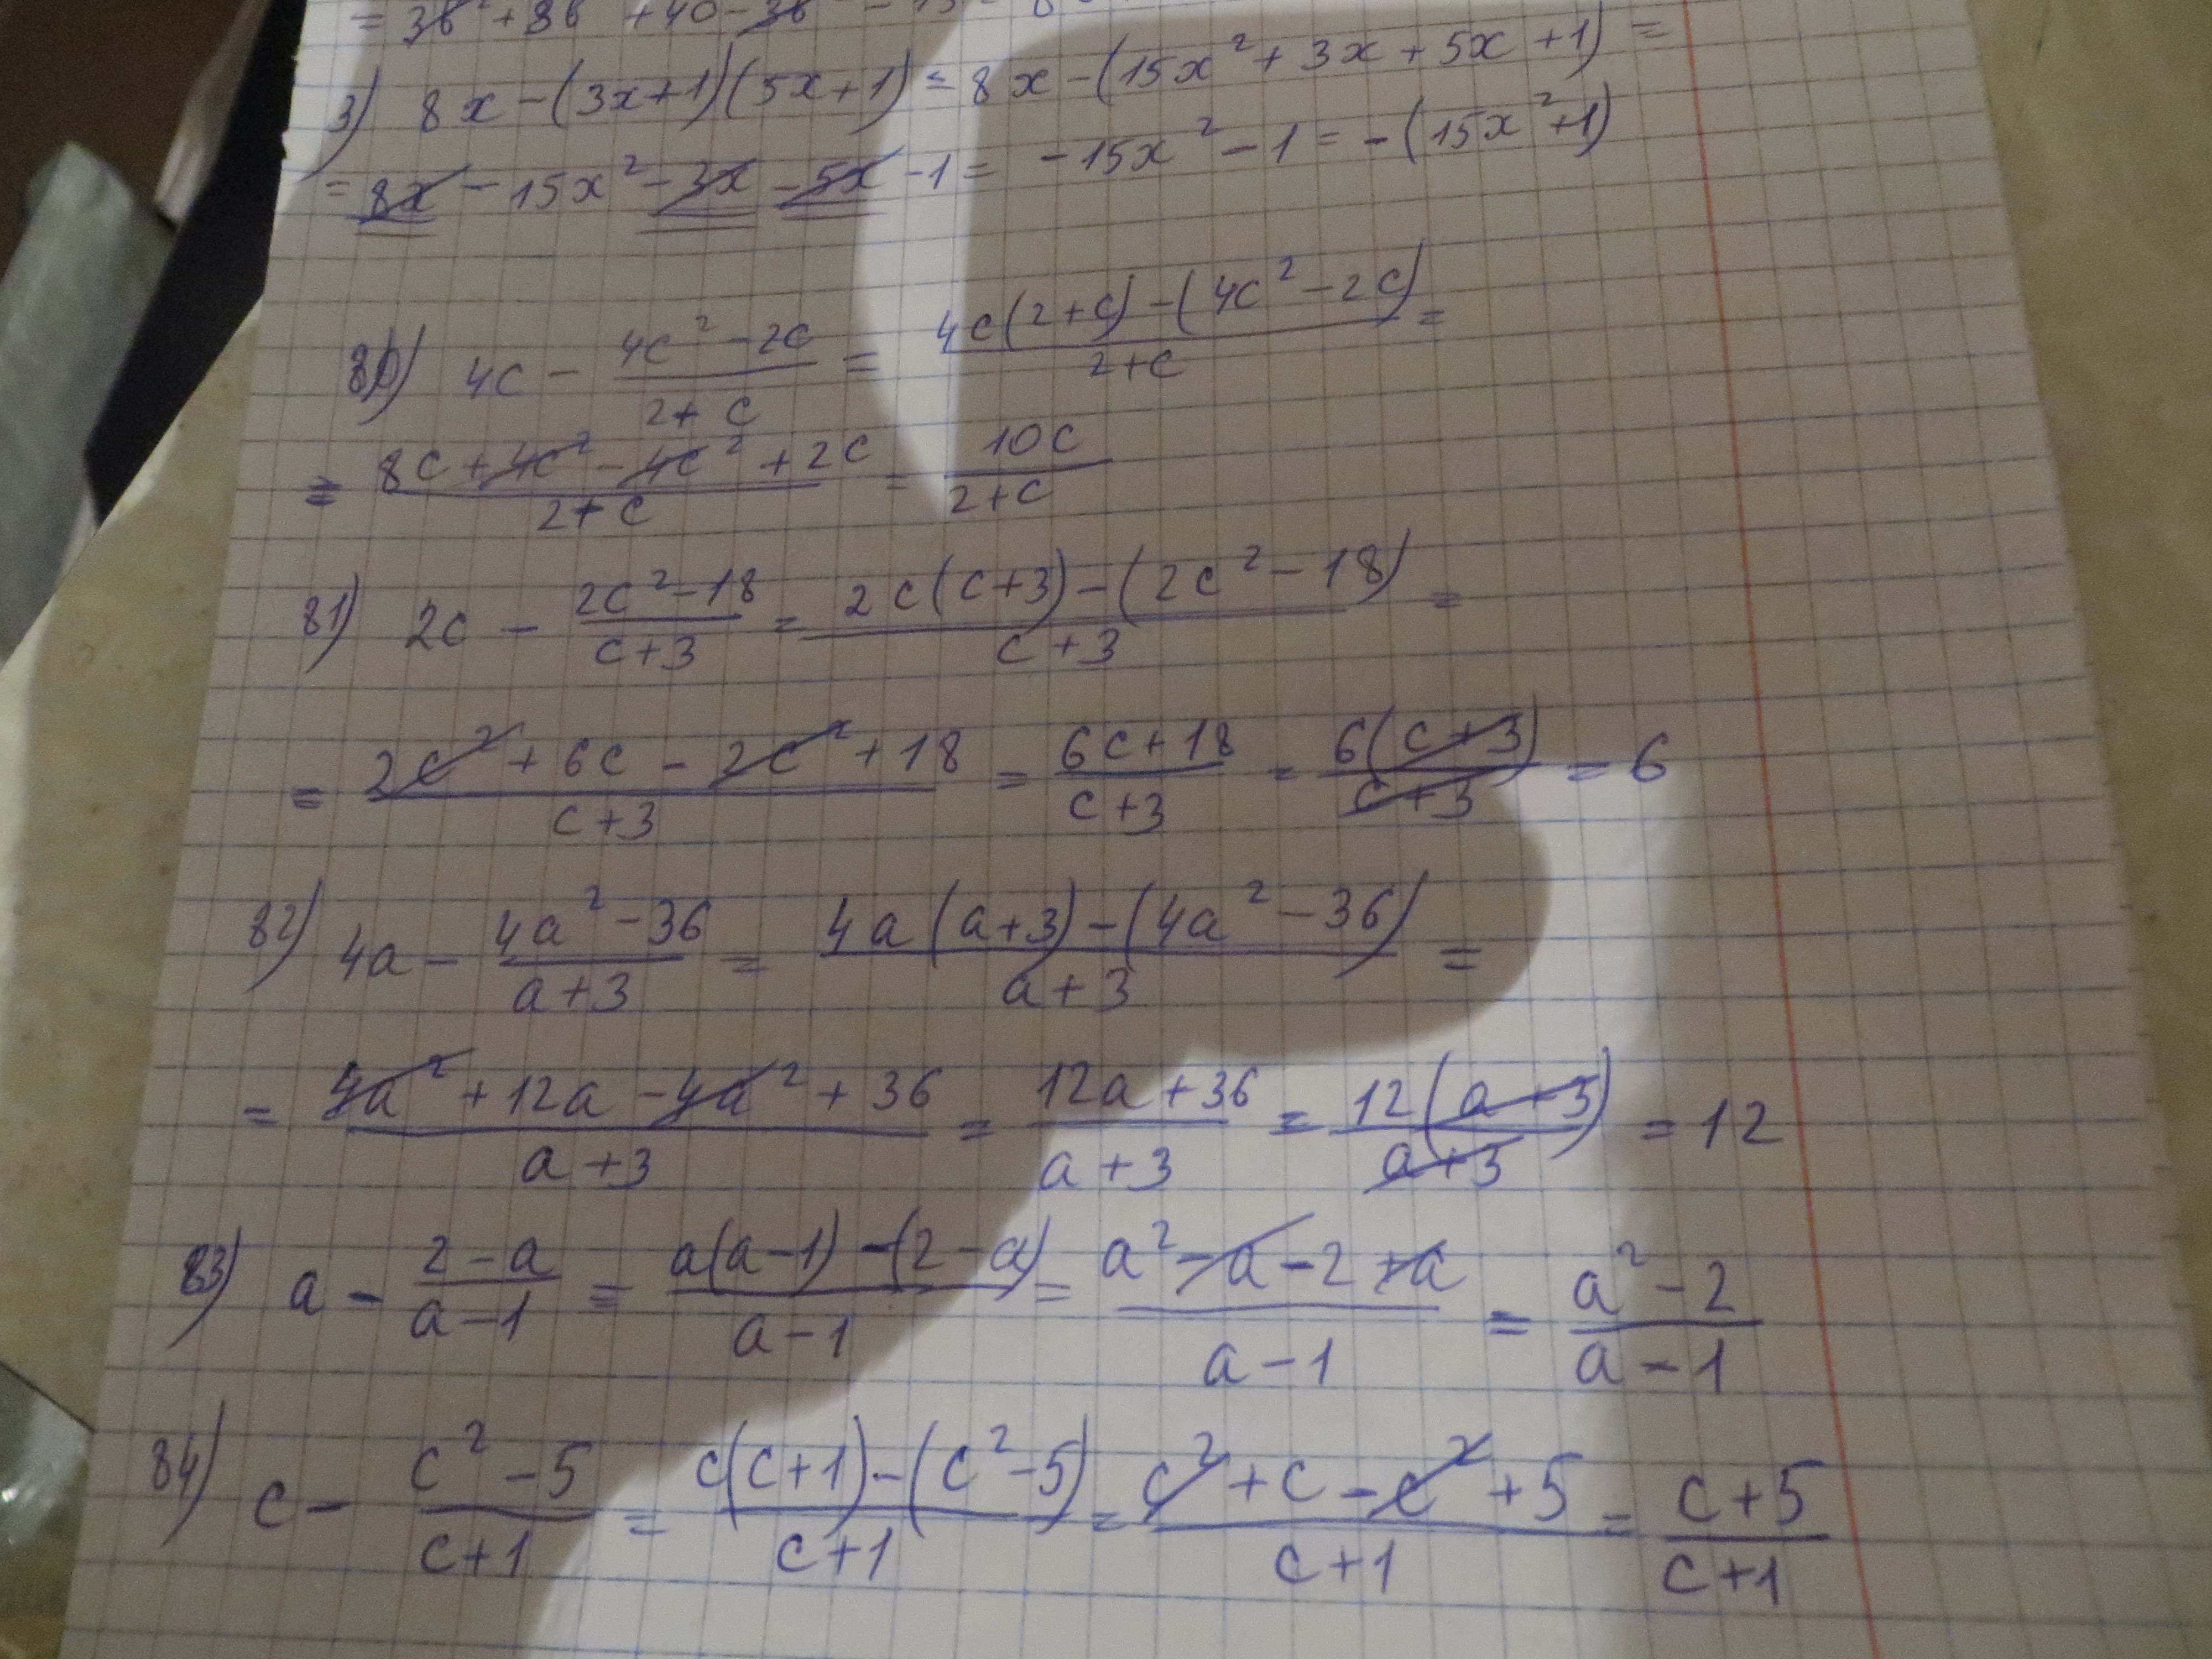 = 3b² + 8b + 40 - 3b²
3) 8x - (3x+1)(5x+1) = 8x - (15x² + 3x + 5x + 1) =
= 8x - 15x² - 3x - 5x - 1 = -15x² - 1 = -(15x²+1)
80) 4c - (4c² - 2c)/(2+c) = (4c(2+c) - (4c² - 2c))/(2+c) =
= (8c + 4c² - 4c² + 2c)/(2+c) = 10c/(2+c)
81) 2c - (2c² - 18)/(c+3) = (2c(c+3) - (2c² - 18))/(c+3) =
= (2c² + 6c - 2c² + 18)/(c+3) = (6c+18)/(c+3) = 6(c+3)/(c+3) = 6
82) 4a - (4a² - 36)/(a+3) = (4a(a+3) - (4a² - 36))/(a+3) =
= (4a² + 12a - 4a² + 36)/(a+3) = (12a+36)/(a+3) = 12(a+3)/(a+3) = 12
83) a - (2-a)/(a-1) = (a(a-1) - (2-a))/(a-1) = (a² - a - 2 + a)/(a-1) = (a² - 2)/(a-1)
84) c - (c² - 5)/(c+1) = (c(c+1) - (c² - 5))/(c+1) = (c² + c - c² + 5)/(c+1) = (c+5)/(c+1)